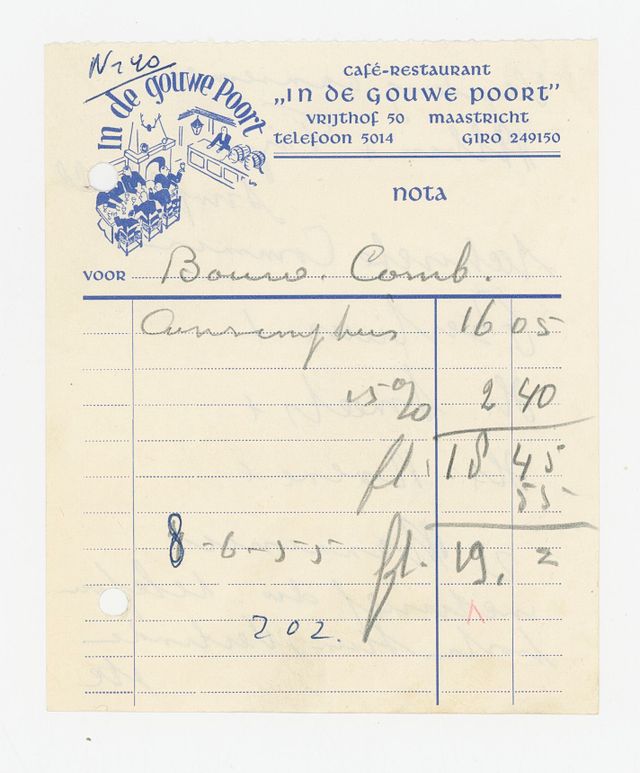 Nr 40
In de gouwe poort
café-restaurant
„in de gouwe poort”
vrijthof 50 maastricht
telefoon 5014 giro 249150
nota
voor Bouw. Comb.
16 05
15% 2 40
fl. 18 45
55-
8-6-55 fl. 19, =
202.